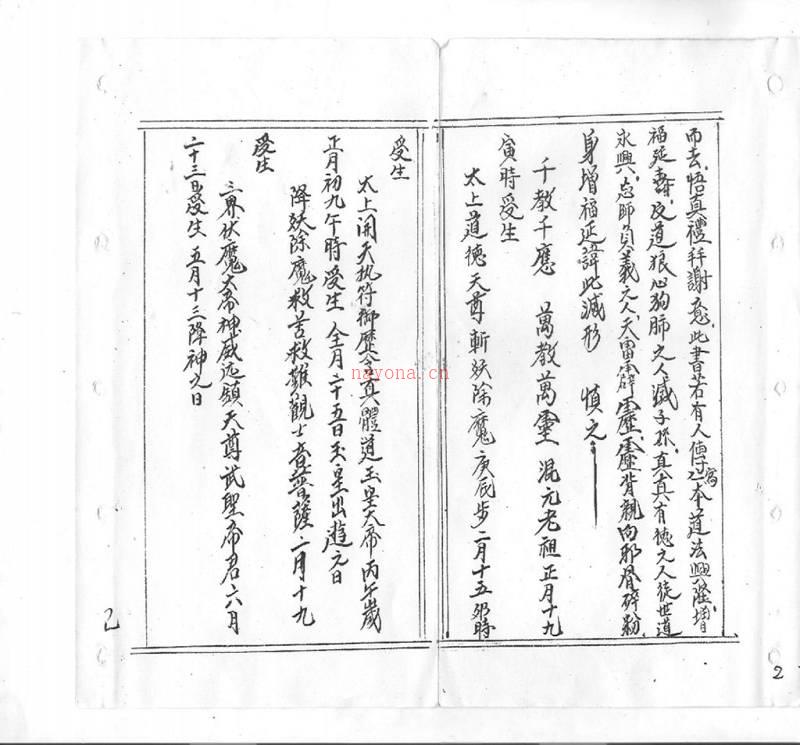 而去悟真禮拜謝意此書若有人傳寫之本道法興隆增
福延壽反道狼心狗肺之人滅子孫真真有德之人徒世道
永興忘師負義之人天雷霹靂靂背親向耶骨碎粉
身增福延諱此滅形 慎之
千教千應 萬教萬靈 混元老祖正月十九
寅時受生
太上道德天尊斬妖除魔庚辰步二月十五卯時
受生
太上開天执符御歷含真體道玉皇大帝丙午歲
正月初九午時受生 全月二十五日玉皇出遊元日
降妖除魔救苦救難觀士音菩薩二月十九
受生
三界伏魔大帝神威远鎮天尊武聖帝君六月
二十三日受生 五月十三降神之日
nayona.cn
2
2